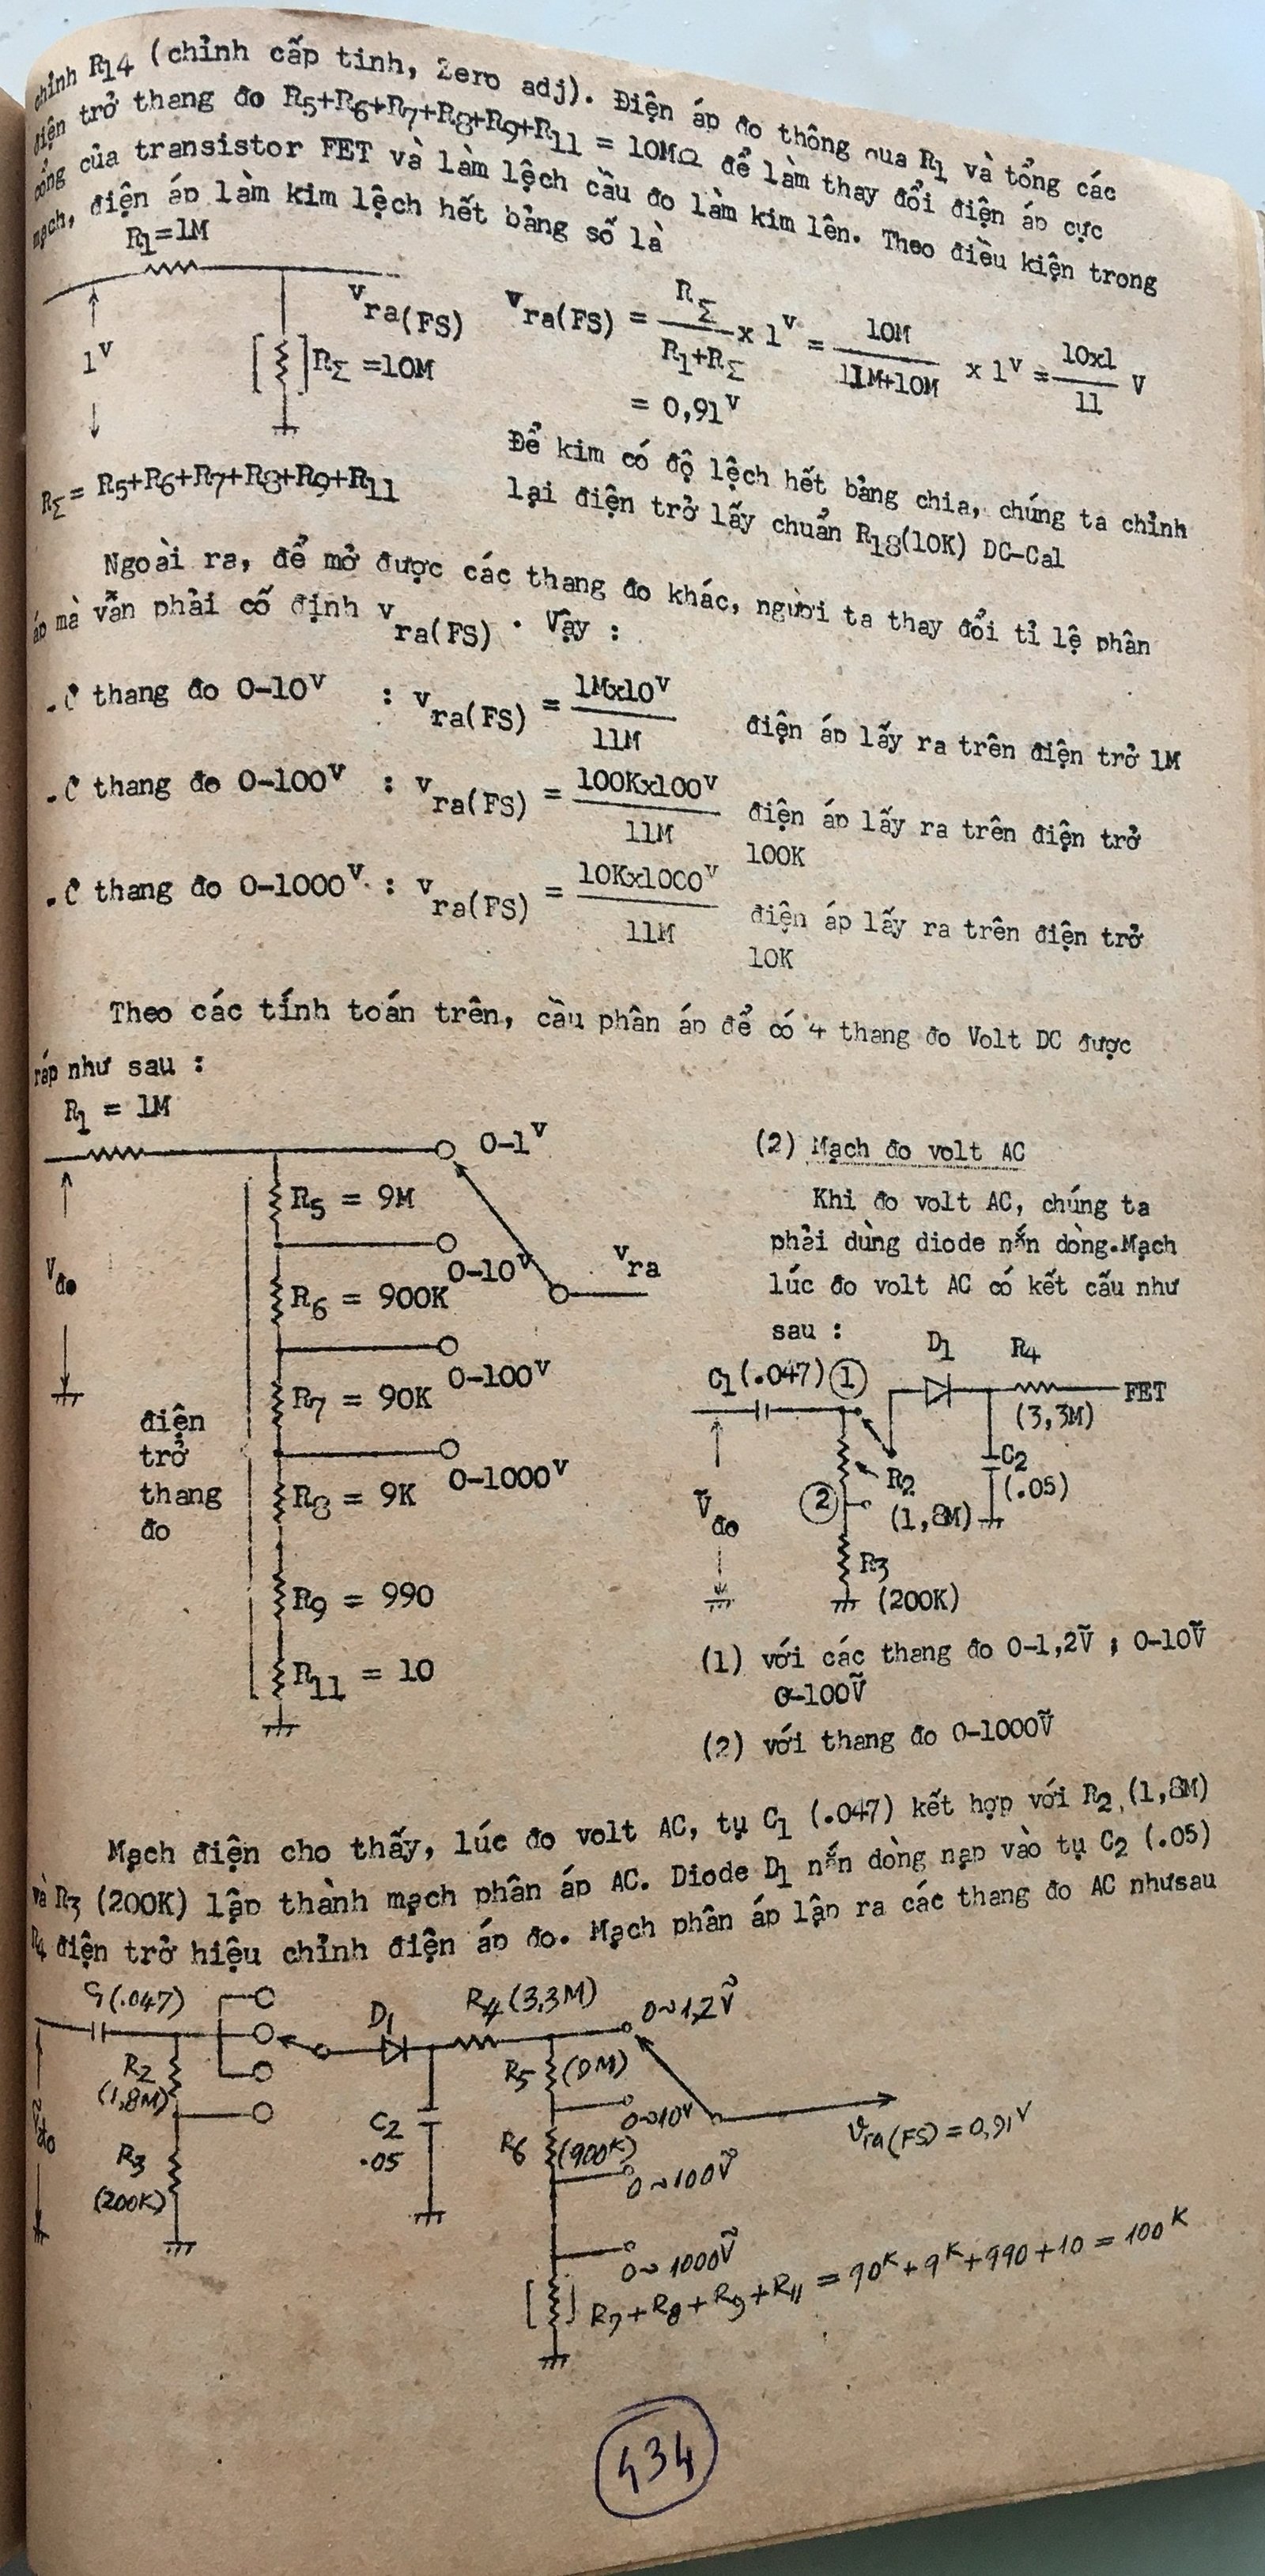 chỉnh R14 (chỉnh cấp tinh, Zero adj). Điện áp đo thông qua R1 và tổng các
điện trở thang đo R5+R6+R7+R8+R9+R11 = 10MΩ để làm thay đổi điện áp cực
cổng của transistor FET và làm lệch cầu đo làm kim lên. Theo điều kiện trong
mạch, điện áp làm kim lệch hết bảng số là
R1=1M
1V
vra(FS)
RΣ =10M
RΣ = R5+R6+R7+R8+R9+R11
vra(FS) = RΣ / R1+RΣ x 1V = 10M / 11M+10M x 1V = 10x1 / 11 V
= 0,91V
Để kim có độ lệch hết bảng chia, chúng ta chỉnh
lại điện trở lấy chuẩn R18(10K) DC-Cal
Ngoài ra, để mở được các thang đo khác, người ta thay đổi tỉ lệ phân
áp mà vẫn phải cố định vra(FS) . Vậy :
.Ở thang đo 0-10V : vra(FS) = 1Mx10V / 11M điện áp lấy ra trên điện trở 1M
.Ở thang đo 0-100V : vra(FS) = 100Kx100V / 11M điện áp lấy ra trên điện trở
100K
.Ở thang đo 0-1000V : vra(FS) = 10Kx1000V / 11M điện áp lấy ra trên điện trở
10K
Theo các tính toán trên, cầu phân áp để có 4 thang đo Volt DC được
ráp như sau :
R1 = 1M
0-1V
R5 = 9M
0-10V
vra
Vđo
R6 = 900K
0-100V
R7 = 90K
0-1000V
điện
trở
thang
đo
R8 = 9K
R9 = 990
R11 = 10
(2) Mạch đo volt AC
Khi đo volt AC, chúng ta
phải dùng diode nắn dòng.Mạch
lúc đo volt AC có kết cấu như
sau :
C1(.047) 1
D1
R4
(3,3M)
FET
R2
(1,8M)
C2
(.05)
2
Ṽđo
R3
(200K)
(1) với các thang đo 0-1,2Ṽ ; 0-10Ṽ
0-100Ṽ
(2) với thang đo 0-1000Ṽ
Mạch điện cho thấy, lúc đo volt AC, tụ C1 (.047) kết hợp với R2 (1,8M)
và R3 (200K) lập thành mạch phân áp AC. Diode D1 nắn dòng nạp vào tụ C2 (.05)
R4 điện trở hiệu chỉnh điện áp đo. Mạch phân áp lập ra các thang đo AC nhưsau
C1(.047)
D1
R4(3,3M)
0~1,2Ṽ
R2
(1,8M)
R5 (9M)
0~10V
C2
.05
R6 (900K)
0~100Ṽ
Vra(FS) = 0,91V
R3
(200K)
0~1000Ṽ
R7 + R8 + R9 + R11 = 90K + 9K + 990 + 10 = 100K
434